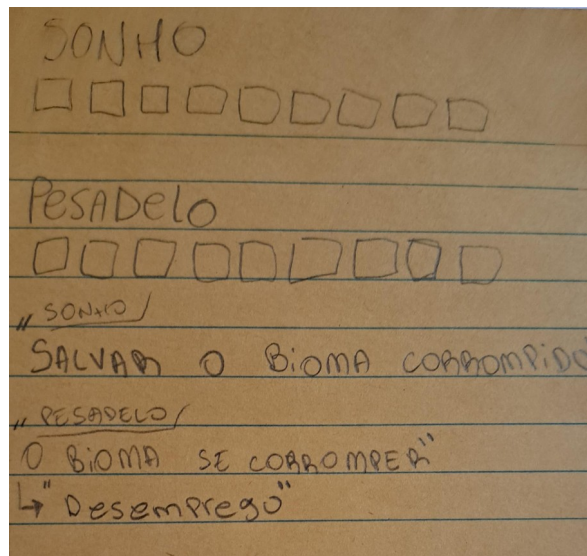 SONHO
PESADELO
"SONHO
SALVAR O BIOMA CORROMPIDO
"PESADELO
O BIOMA SE CORROMPER"
↳"Desemprego"